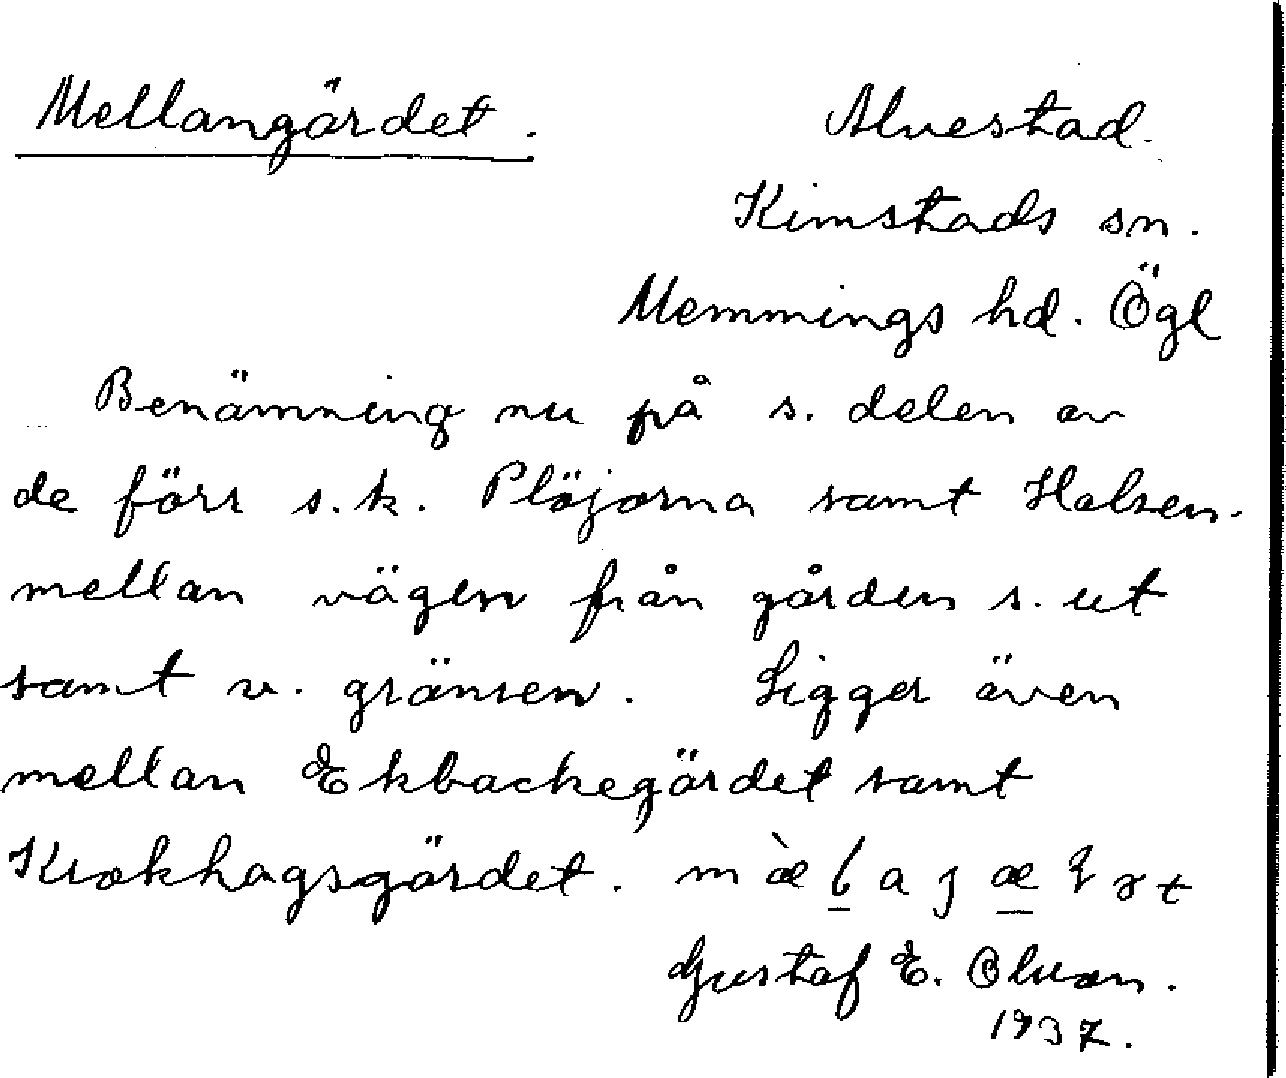 Mellangärdet. Alvestad.
Kimstads sn.
Memmings hd. Ögl
Benämning nu på s. delen av
de förr s.k. Plöjorna samt Halsen.
mellan vägen från gården s. ut
samt v. gränsen. Ligger även
mellan Ekbackegärdet samt
Krokhagsgärdet.
Gustaf E. Olson.
1937.